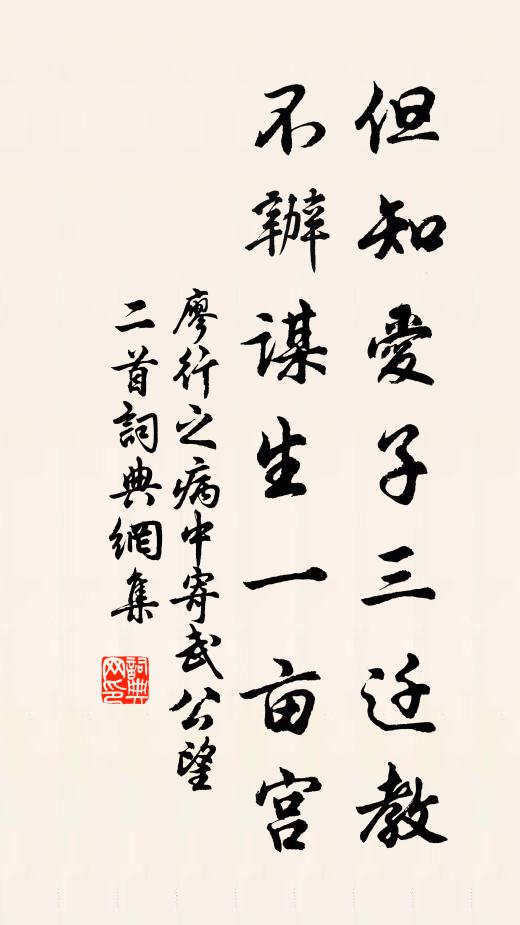 但知愛子三迁教
不辦謀生一亩宫
廖行之病中寄武公望
二首詞典網集
詞典网印